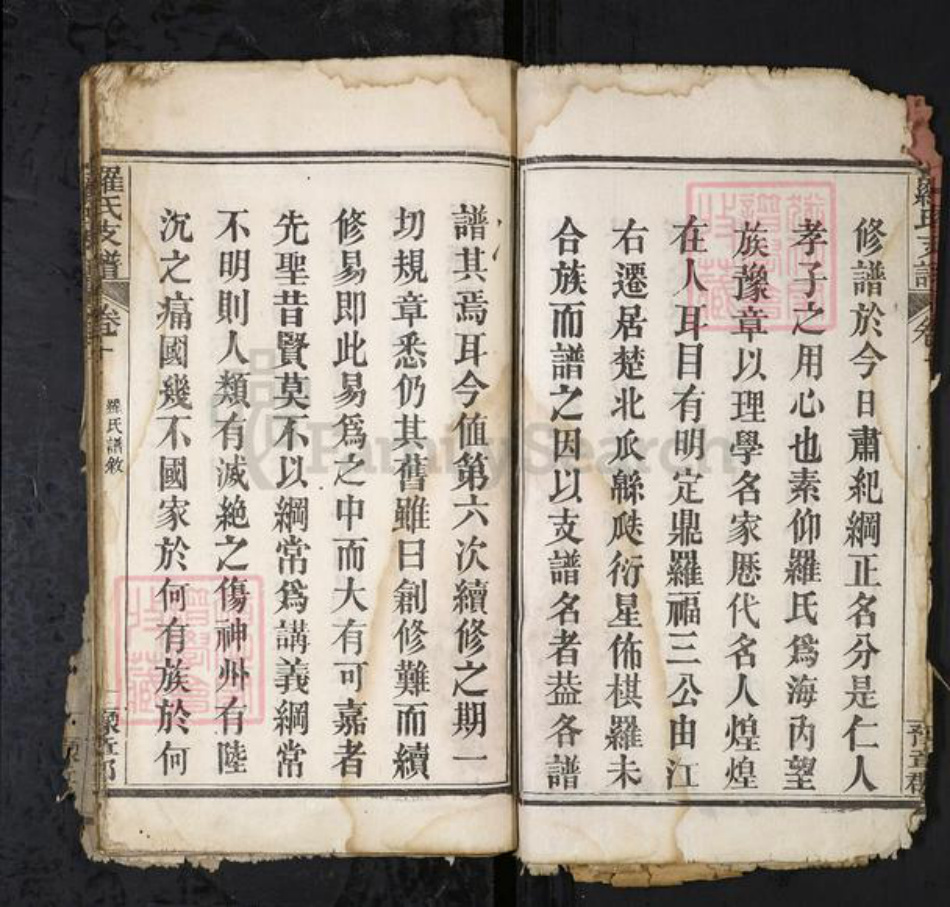 修譜於今日肅紀綱正名分是仁人
孝子之用心也素仰羅氏爲海內望
族豫章以理學名家歷代名人煌煌
在人耳目有明定鼎羅福三公由江
右遷居楚北瓜緜瓞衍星佈棋羅未
合族而譜之因以支譜名者葢各譜
豫章郡
譜其焉耳今值第六次續修之期一
切規章悉仍其舊雖曰創修難而續
修易卽此易爲之中而大有可嘉者
先聖昔賢莫不以綱常爲講義綱常
不明則人類有滅絕之傷神州有陸
沉之痛國幾不國家於何有族於何
羅氏支譜
卷
羅氏譜敘
豫章郡
FamilySearch